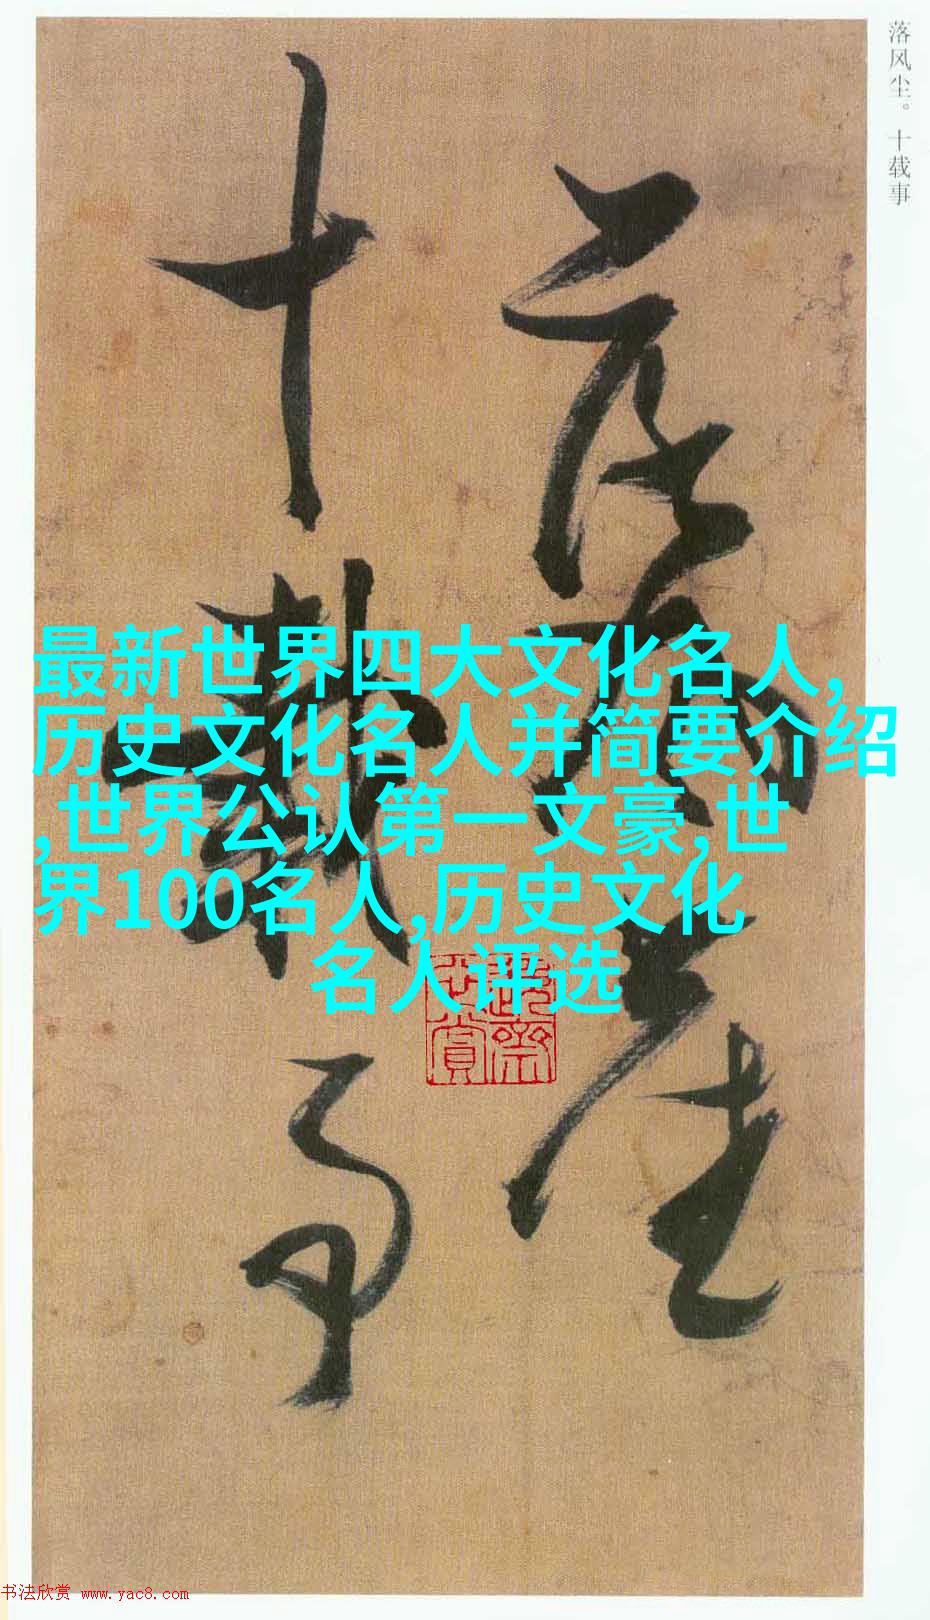 落风尘。十载事
落風塵
十載事
最新世界四大文化名人,
历史文化名人并简要介绍
,世界公认第一文豪,世
界100名人,历史文化
名人评选
书法欣赏 www.yac8.com